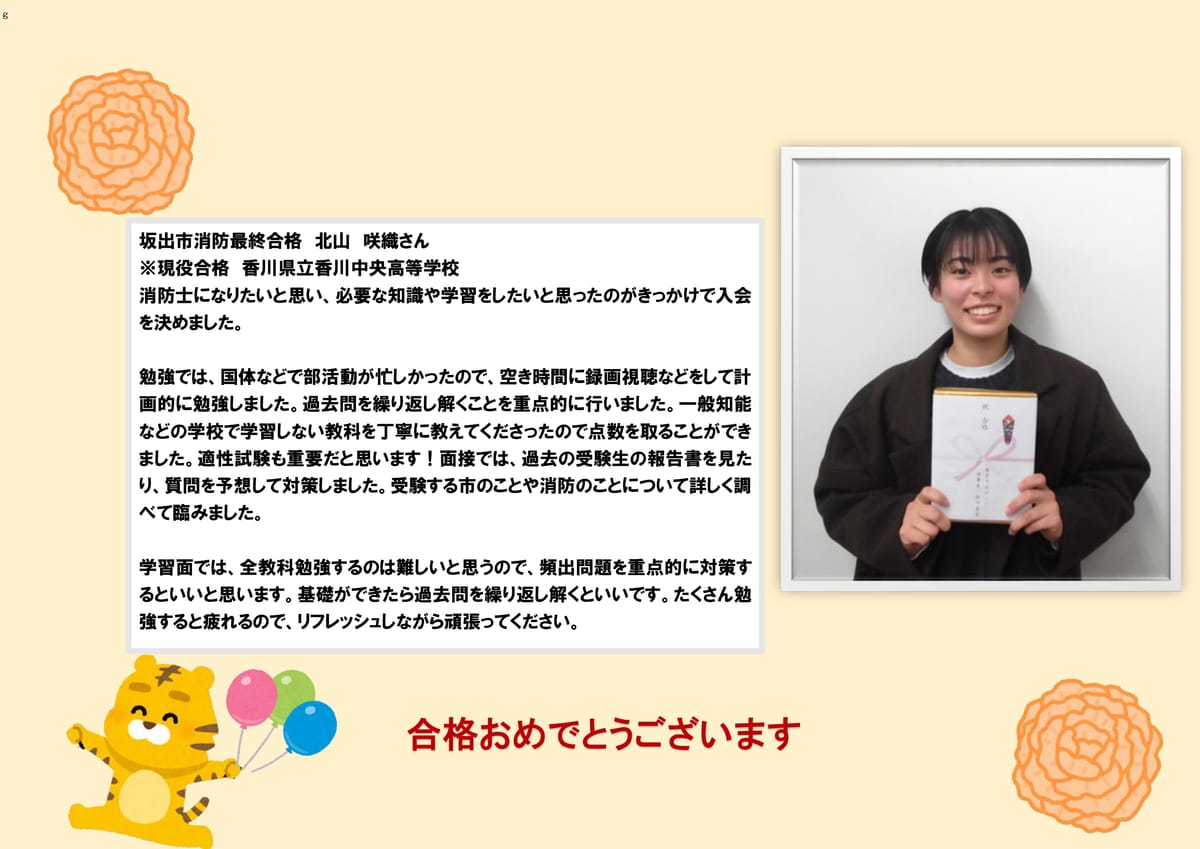 g
坂出市消防最終合格　北山　咲織さん
※現役合格　香川県立香川中央高等学校
消防士になりたいと思い、必要な知識や学習をしたいと思ったのがきっかけで入会
を決めました。
勉強では、国体などで部活動が忙しかったので、空き時間に録画視聴などをして計
画的に勉強しました。過去問を繰り返し解くことを重点的に行いました。一般知能
などの学校で学習しない教科を丁寧に教えてくださったので点数を取ることができ
ました。適性試験も重要だと思います！面接では、過去の受験生の報告書を見た
り、質問を予想して対策しました。受験する市のことや消防のことについて詳しく調
べて臨みました。
学習面では、全教科勉強するのは難しいと思うので、頻出問題を重点的に対策す
るといいと思います。基礎ができたら過去問を繰り返し解くといいです。たくさん勉
強すると疲れるので、リフレッシュしながら頑張ってください。
祝 合格
合格おめでとうございます